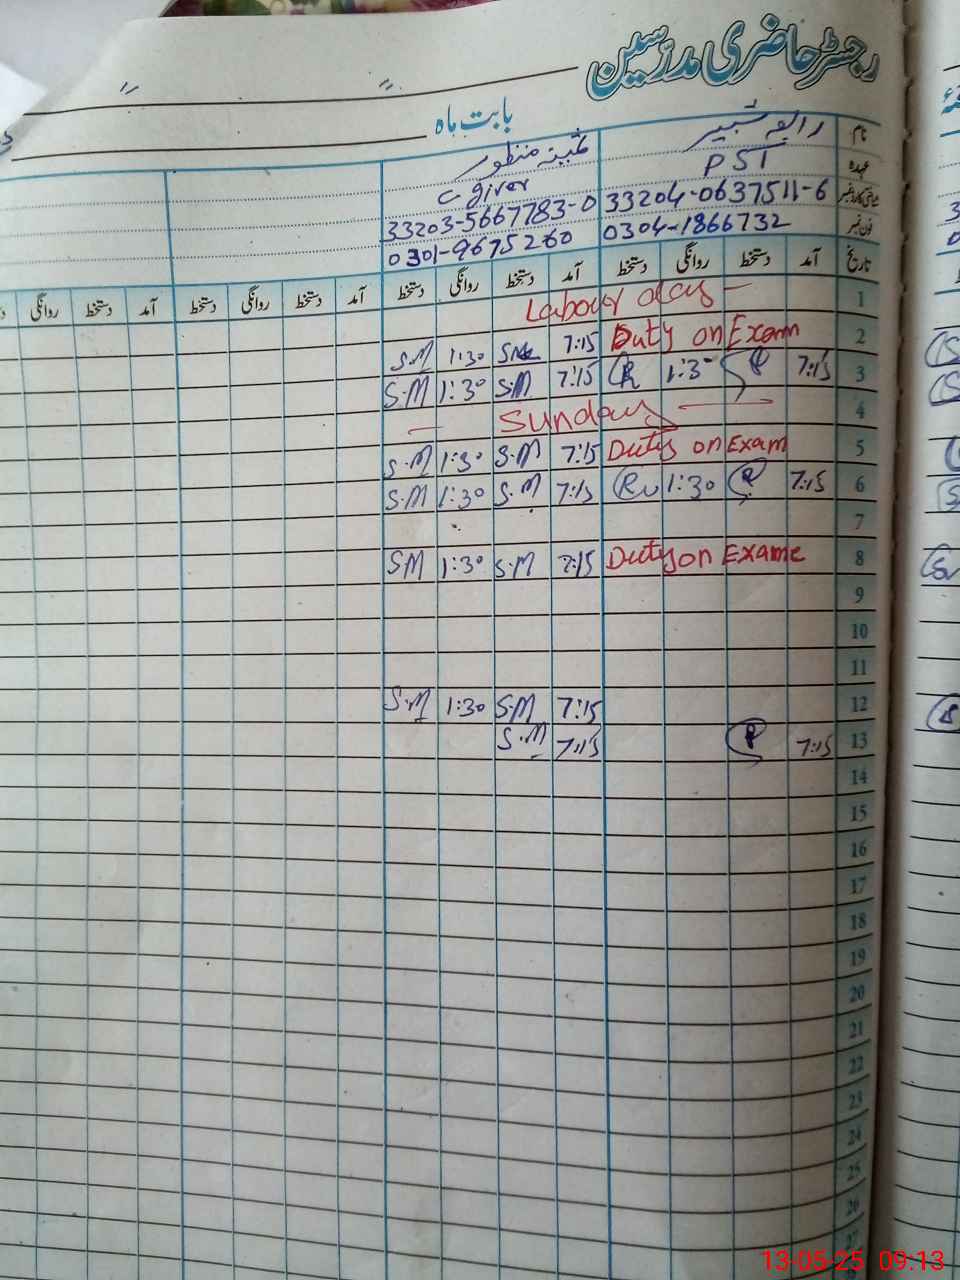 رجسٹر حاضری مدرسین
بابت ماہ
نام رابعہ شبیر ثمینہ منظور
عہدہ PST C-giver
شناختی کارڈ نمبر 33204-0637511-6 33203-5667783-0
فون نمبر 0304-1866732 0301-9675260
تاریخ آمد دستخط روانگی دستخط آمد دستخط روانگی دستخط آمد دستخط روانگی دستخط آمد دستخط روانگی
1 Labour day
2 Duty on Exam 7:15 SM 1:30 S.M
3 7:15 R 1:30 R 7:15 S.M 1:30 S.M
4 Sunday
5 Duty on Exam 7:15 S.M 1:30 S.M
6 7:15 R 1:30 R 7:15 S.M 1:30 S.M
7
8 Duty on Exame 7:15 S.M 1:30 SM
9
10
11
12 7:15 S.M 1:30 S.M
13 7:15 R 7:15 S.M
14
15
16
17
18
19
20
21
22
23
24
25
26
27
13-05-25 09:13